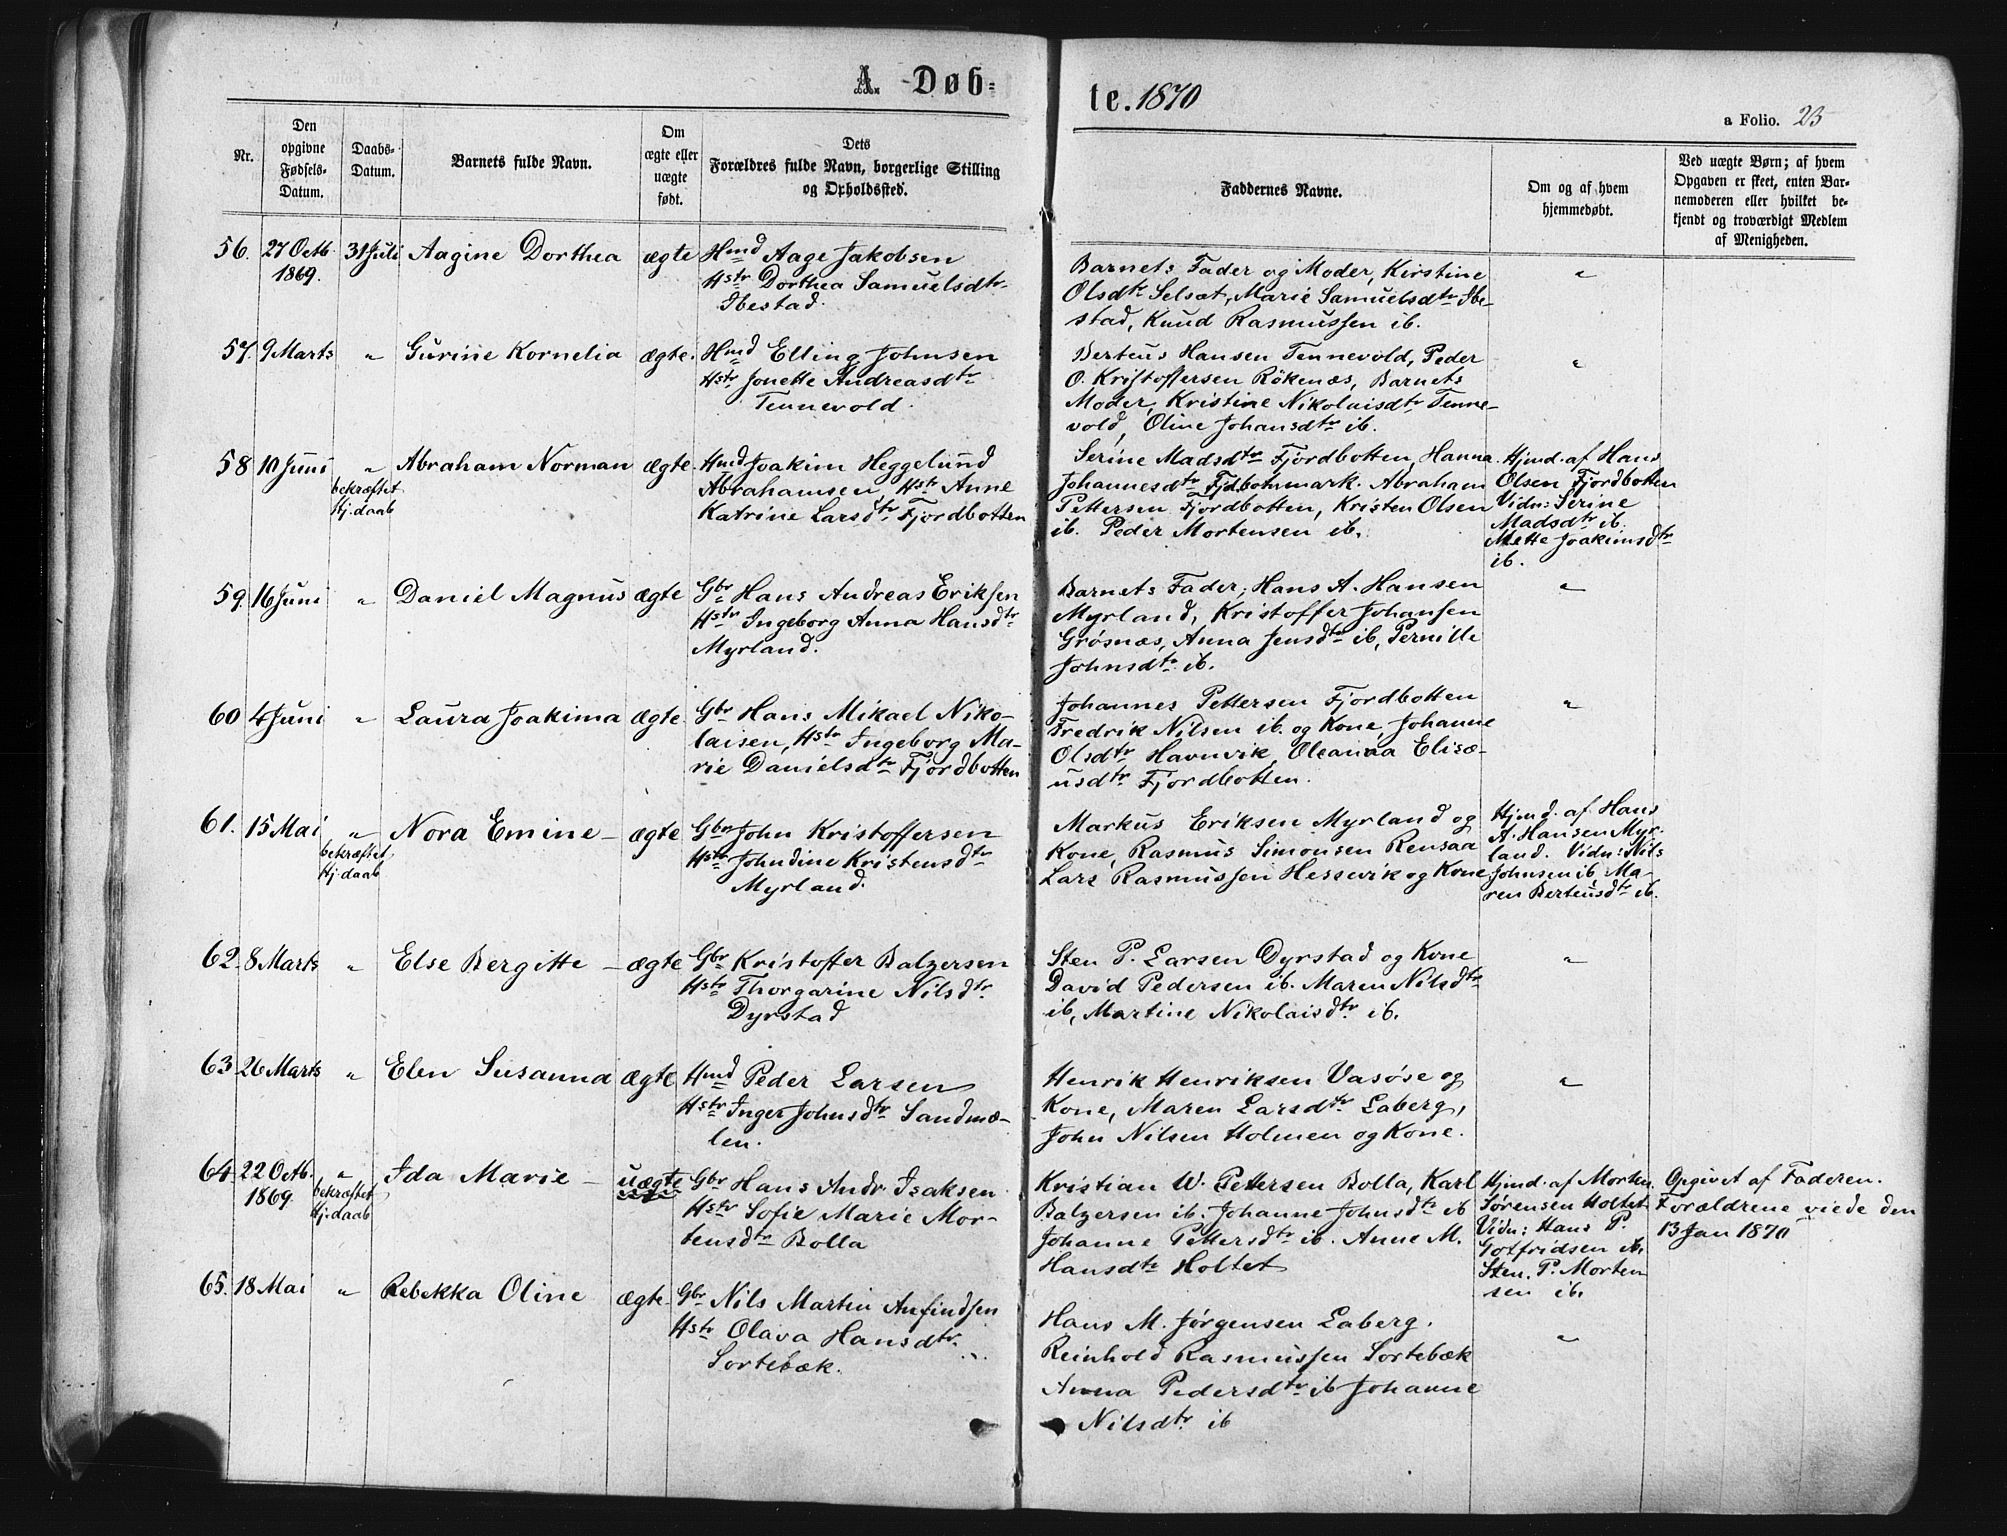 A Døb-
te. 1870
a Folio. 23
Nr.
Den
opgivne
Fødsels-
Datum.
Daabs-
Datum.
Barnets fulde Navn.
Om
ægte eller
uægte
født.
Dets
Forældres fulde Navn, borgerlige Stilling
og Opholdssted.
Faddernes Navne.
Om og af hvem
hjemmedøbt.
Ved uægte Børn; af hvem
Opgaven er skeet, enten Bar-
nemoderen eller hvilket be-
kjendt og troværdigt Medlem
af Menigheden.
56. 27 Octb. 31 Juli Aagine Dorthea ægte Hmd Aage Jakobsen
1869. Hstr Dorthea Samuelsdtr
Ibestad.
Barnets Fader og Moder, Kirstine
Olsdtr Selsæt, Marie Samuelsdtr Ibe-
stad, Knud Rasmussen ib.
"
57. 9 Marts " Gurine Kornelia ægte. Hmd Elling Johnsen
Hstr Jonette Andreasdtr
Tennevold.
Berteus Hansen Tennevold, Peder
O. Kristoffersen Rökenæs, Barnets
Moder, Kristine Nikolaisdtr Tenne-
vold, Oline Johansdtr ib.
"
58 10 Juni " Abraham Norman ægte Hmd Joakim Heggelund
bekræftet Abrahamsen, Hstr Anne
Hj.daab Katrine Larsdtr Fjordbotten
Serine Madsdtr Fjordbotten, Hanna
Johannesdtr Fjdbotnmark. Abraham
Pettersen Fjordbotten, Kristen Olsen
ib. Peder Mortensen ib.
Hjmd. af Hans
Olsen Fjordbotten
Vidn: Serine
Madsdtr ib.
Mette Joakimsdtr
ib.
59. 16 Juni " Daniel Magnus ægte Gbr Hans Andreas Eriksen
Hstr Ingeborg Anna Hansdtr
Myrland.
Barnets Fader, Hans A. Hansen
Myrland, Kristoffer Johansen
Grøsnæs, Anna Jensdtr ib, Pernille
Johnsdtr ib.
"
60 4 Juni " Laura Joakima ægte Gbr Hans Mikael Niko-
laisen, Hstr Ingeborg Ma-
rie Danielsdtr Fjordbotten
Johannes Pettersen Fjordbotten
Fredrik Nilsen ib. og Kone, Johanne
Olsdtr Havnvik, Oleanaa Elisæ-
usdtr Fjordbotten.
"
61. 15 Mai " Nora Emine - ægte Gbr John Kristoffersen
bekræftet Hstr Johndine Kristensdtr
Hj.daab Myrland.
Markus Eriksen Myrland og
Kone, Rasmus Simonsen Rensaa
Lars Rasmussen Hessevik og Kone
Hjmd. af Hans
A. Hansen Myr-
land. Vidn: Nils
Johnsen ib, Ma-
ren Berteusdtr ib.
62. 8 Marts " Else Bergitte - ægte Gbr Kristoffer Balzersen
Hstr Thorgarine Nilsdtr.
Dyrstad
Sten P. Larsen Dyrstad og Kone
David Pedersen ib. Maren Nilsdtr
ib, Martine Nikolaisdtr ib.
"
63. 26 Marts " Elen Susanna ægte Hmd Peder Larsen
Hstr Inger Johnsdtr Sandmæ-
len.
Henrik Henriksen Vasøse og
Kone, Maren Larsdtr Laberg,
John Nilsen Holmen og Kone.
"
64. 22 Octb. " Ida Marie - uægte Gbr Hans Andr. Isaksen
1869. bekræftet Hstr Sofie Marie Mor-
Hj.daab tensdtr Bolla
Kristian W. Pettersen Bolla, Karl
Balzersen ib. Johanne Johnsdtr ib
Johanne Pettersdtr ib. Anne M.
Hansdtr Holtet
Hjmd. af Morten
Sørensen Holtet
Vidn: Hans P.
Gotfridsen ib.
Sten. P. Morten
sen ib.
Opgivet af Faderen.
Forældrene viede den
13 Jan 1870
65. 18 Mai " Rebekka Oline ægte. Gbr Nils Martin Anfindsen
Hstr Olava Hansdtr.
Sortebæk.
Hans M. Jørgensen Laberg.
Reinhold Rasmussen Sortebæk
Anna Pedersdtr ib Johanne
Nilsdtr ib
"